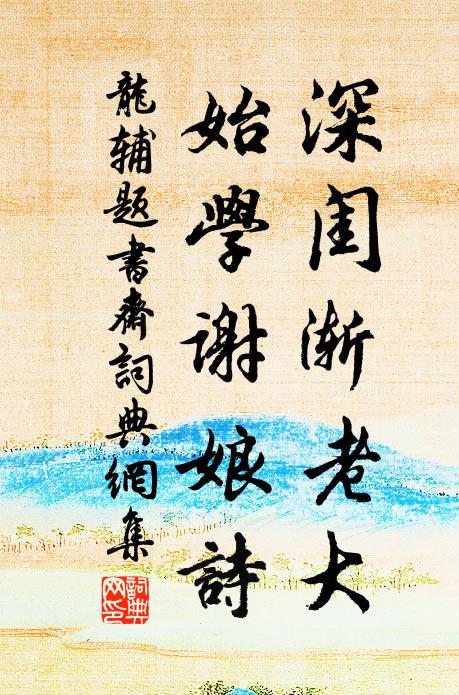 深闺渐老大
始學谢娘詩
龍辅题書齋詞典網集
詞典网印